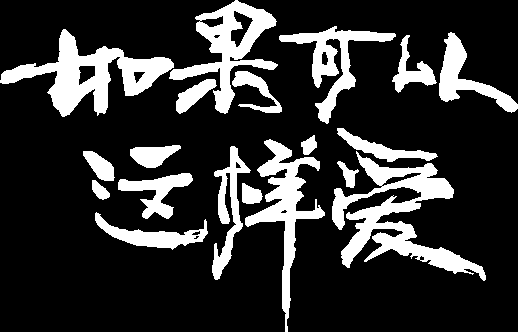 如果可以
这样爱